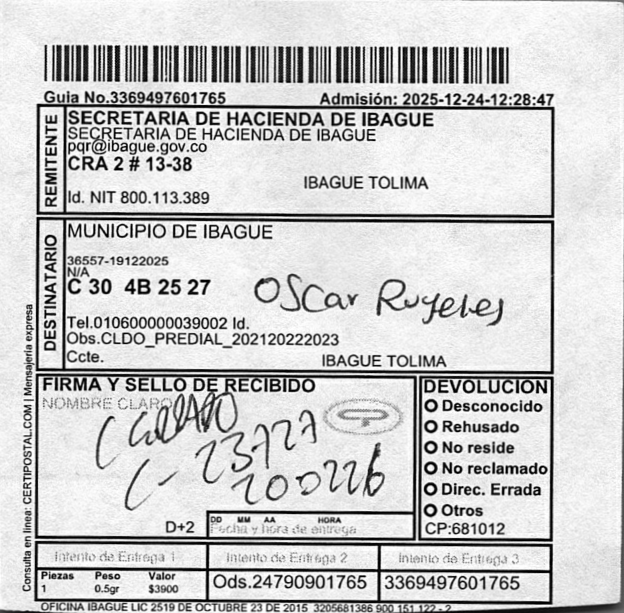 Guia No.3369497601765 Admisión: 2025-12-24-12:28:47
REMITENTE
SECRETARIA DE HACIENDA DE IBAGUE
SECRETARIA DE HACIENDA DE IBAGUE
pqr@ibague.gov.co
CRA 2 # 13-38
IBAGUE TOLIMA
Id. NIT 800.113.389
DESTINATARIO
MUNICIPIO DE IBAGUE
36557-19122025
N/A
C 30 4B 25 27
Oscar
Tel.010600000039002 Id.
Obs.CLDO_PREDIAL_202120222023
Ccte. IBAGUE TOLIMA
FIRMA Y SELLO DE RECIBIDO
NOMBRE CLARO
C-23727
200226
D+2
DD MM AA HORA
Fecha y hora de entrega
DEVOLUCION
Desconocido
Rehusado
No reside
No reclamado
Direc. Errada
Otros
CP:681012
Intento de Entrega 1 Intento de Entrega 2 Intento de Entrega 3
Piezas Peso Valor
1 0.5gr $3900
Ods.24790901765 3369497601765
Consulta en linea: CERTIPOSTAL.COM | Mensajería expresa
OFICINA IBAGUE LIC 2519 DE OCTUBRE 23 DE 2015 3205681386 900 151 122 - 2